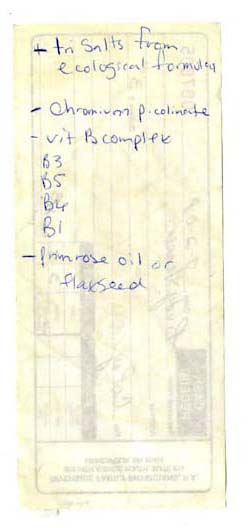 + tri Salts from
ecological formulas
- Chromium picolinate
- vit B complex
B3
B5
B4
B1
- primrose oil or
flaxseed